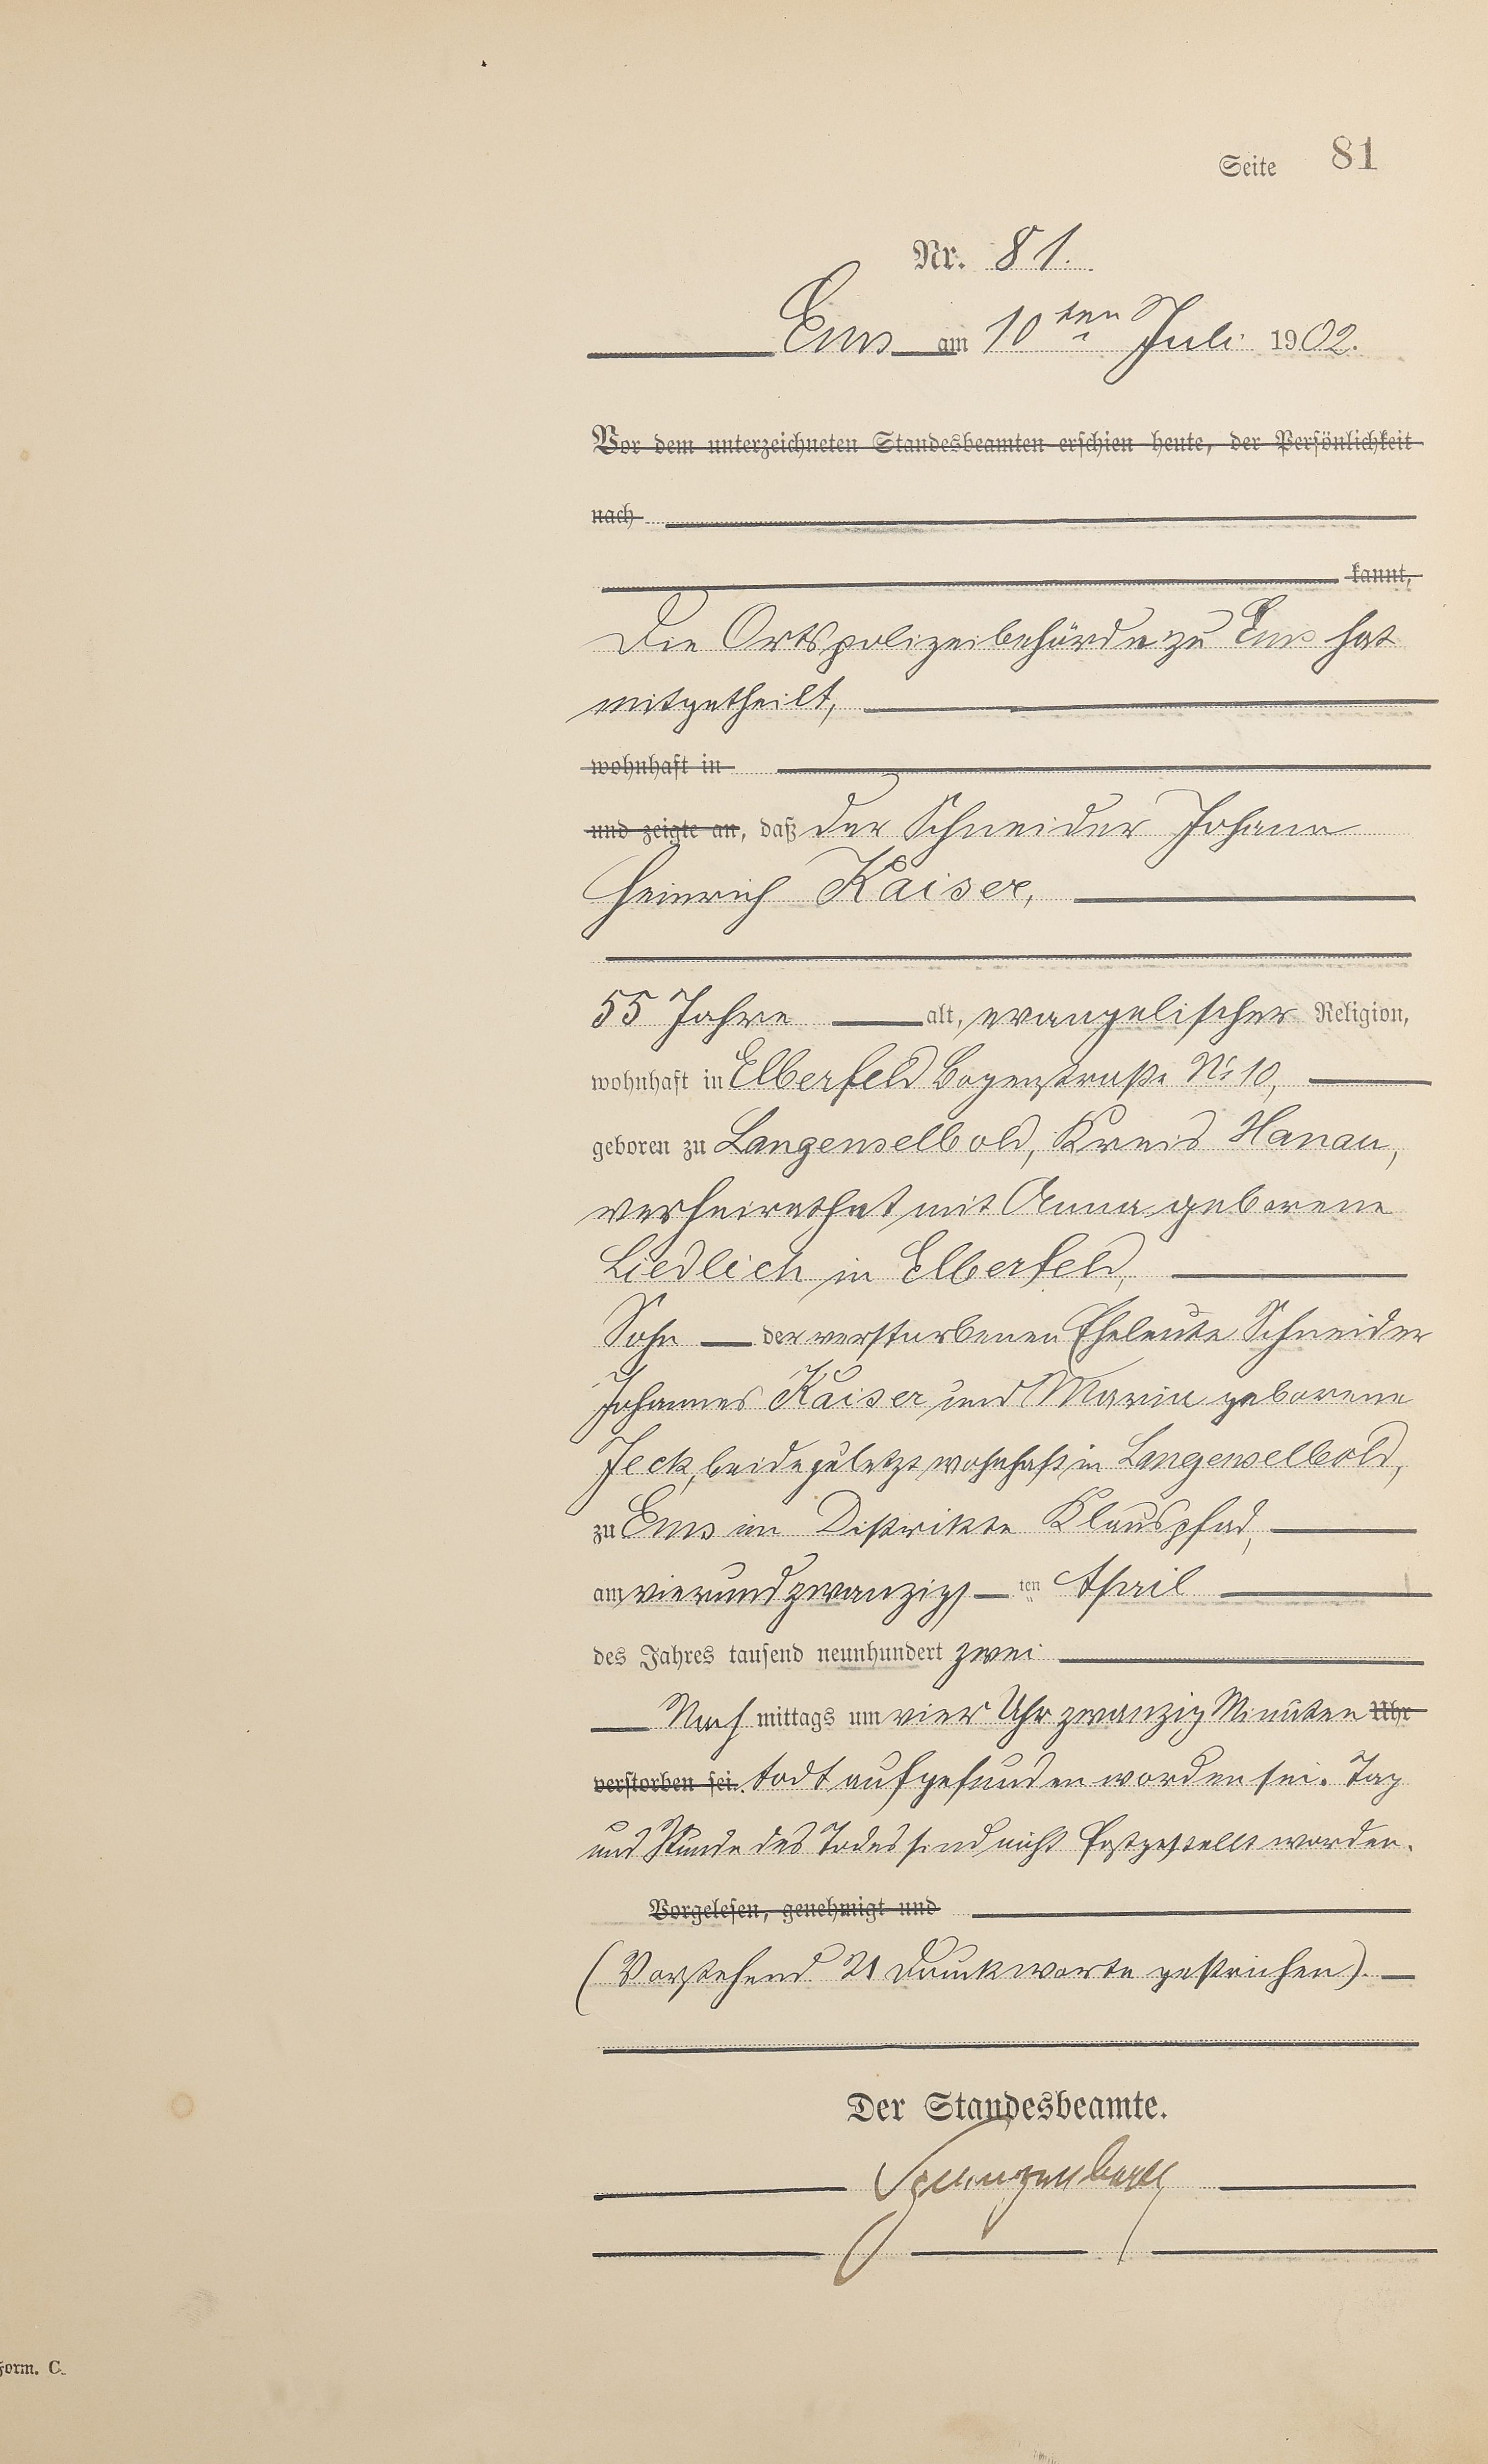 Seite 81
Nr. 81.
Ems am 10ten Juli 1902.
Vor dem unterzeichneten Standesbeamten erschien heute, der Persönlichkeit
nach
kannt,
Die Ortspolizeibehörde zu Ems hat
mitgetheilt,
wohnhaft in
und zeigte an, daß der Schneider Johann
Heinrich Kaiser,
55 Jahre alt, evangelischer Religion,
wohnhaft in Elberfeld Bogenstraße No 10,
geboren zu Langenselbold, Kreis Hanau,
verheirathet mit Anna geborene
Liedlich in Elberfeld,
Sohn der verstorbenen Eheleute Schneider
Johannes Kaiser und Maria geborene
Jeck, beide zuletzt wohnhaft in Langenselbold,
zu Ems im Distrikte Klauspfad,
am vierundzwanzigs ten April
des Jahres tausend neunhundert zwei
Nach mittags um vier Uhr zwanzig Minuten Uhr
verstorben sei. todt aufgefunden worden sei. Tag
und Stunde des Todes sind nicht festgestellt worden.
Vorgelesen, genehmigt und
(Vorstehend 21 Druckworte gestrichen).
Der Standesbeamte.
Form. C.